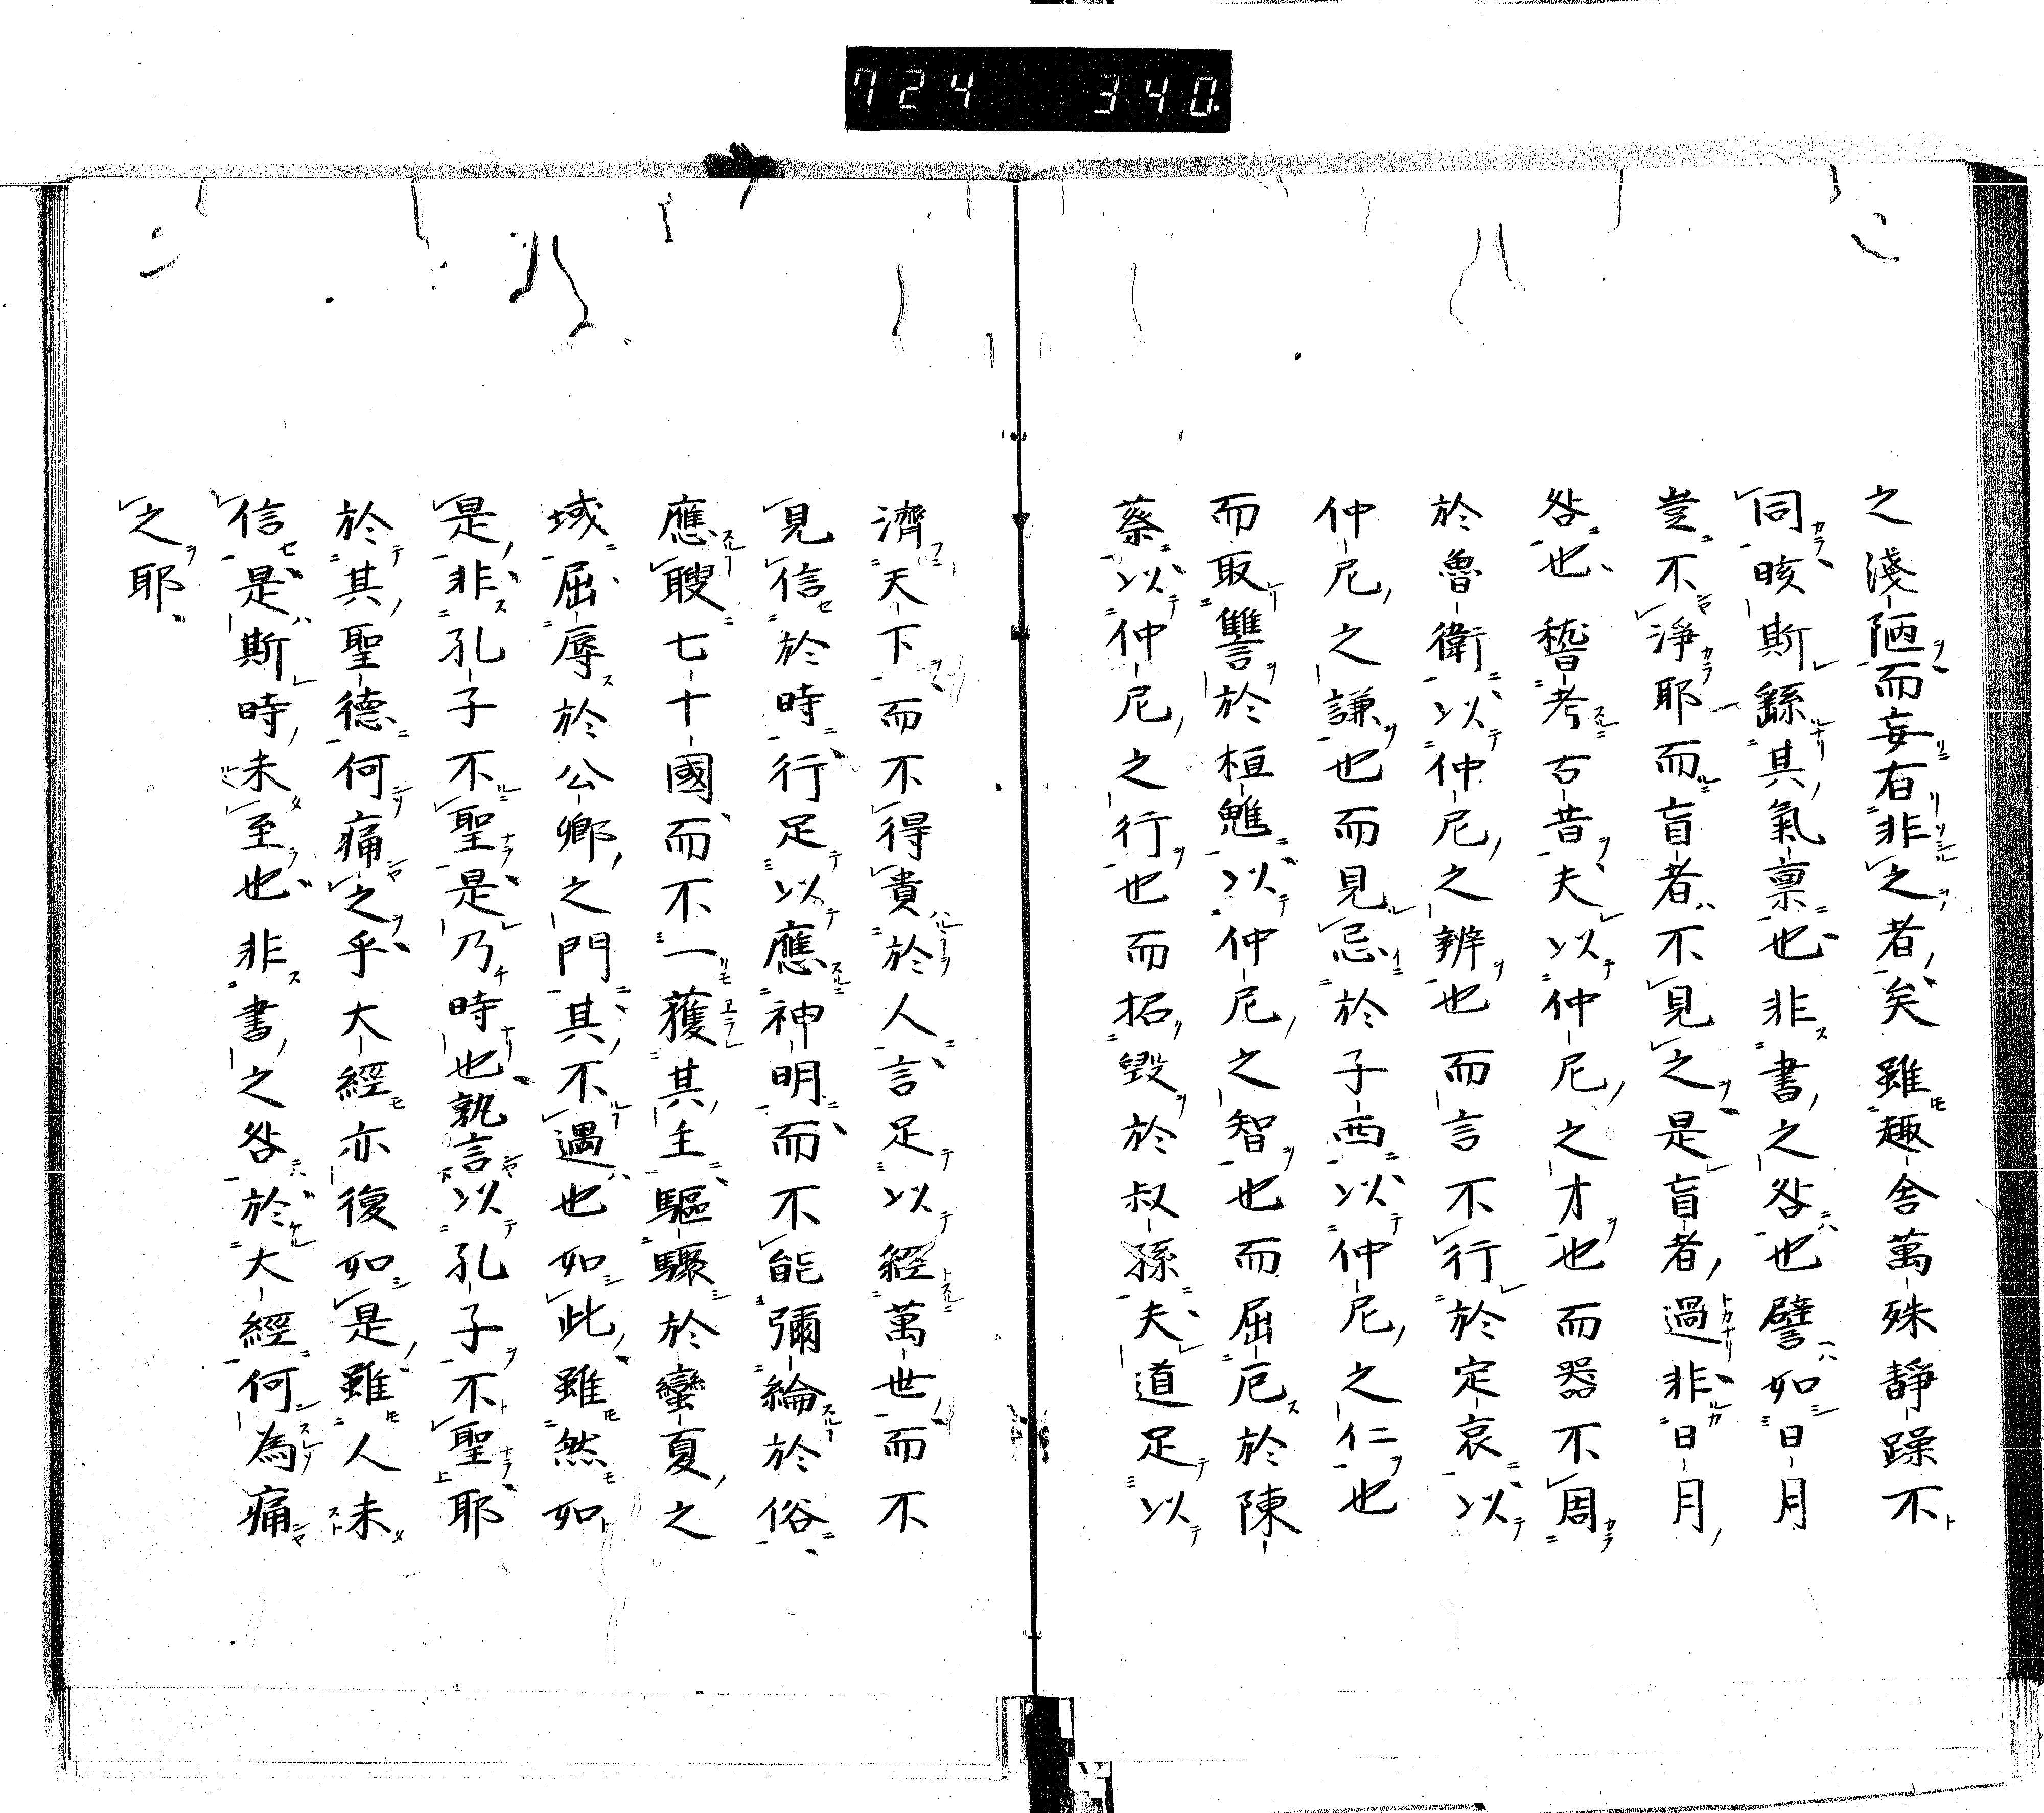 724 340
之淺陋而妄有非之者矣雖趣舎萬殊靜躁不
同咳斯繇其氣稟也非書之咎也譬如日月
豈不淨耶而盲者不見之是盲者過非日月
咎也稽考古昔夫以仲尼之才也而器不周
於魯衛以仲尼之辨也而言不行於定哀以
仲尼之謙也而見忌於子西以仲尼之仁也
而取讐於桓魋以仲尼之智也而屈厄於陳
蔡以仲尼之行也而招毀於叔孫夫道足以
濟天下而不得貴於人言足以經萬世而不
見信於時行足以應神明而不能彌綸於俗
應聘七十國而不一獲其主驅驟於蠻夏之
域屈辱於公卿之門其不遇也如此雖然如
是非孔子不聖是乃時也孰言以孔子不聖耶
於其聖德何痛之乎大經亦復如是雖人未
信是斯時未至也非書之咎於大經何為痛
之耶